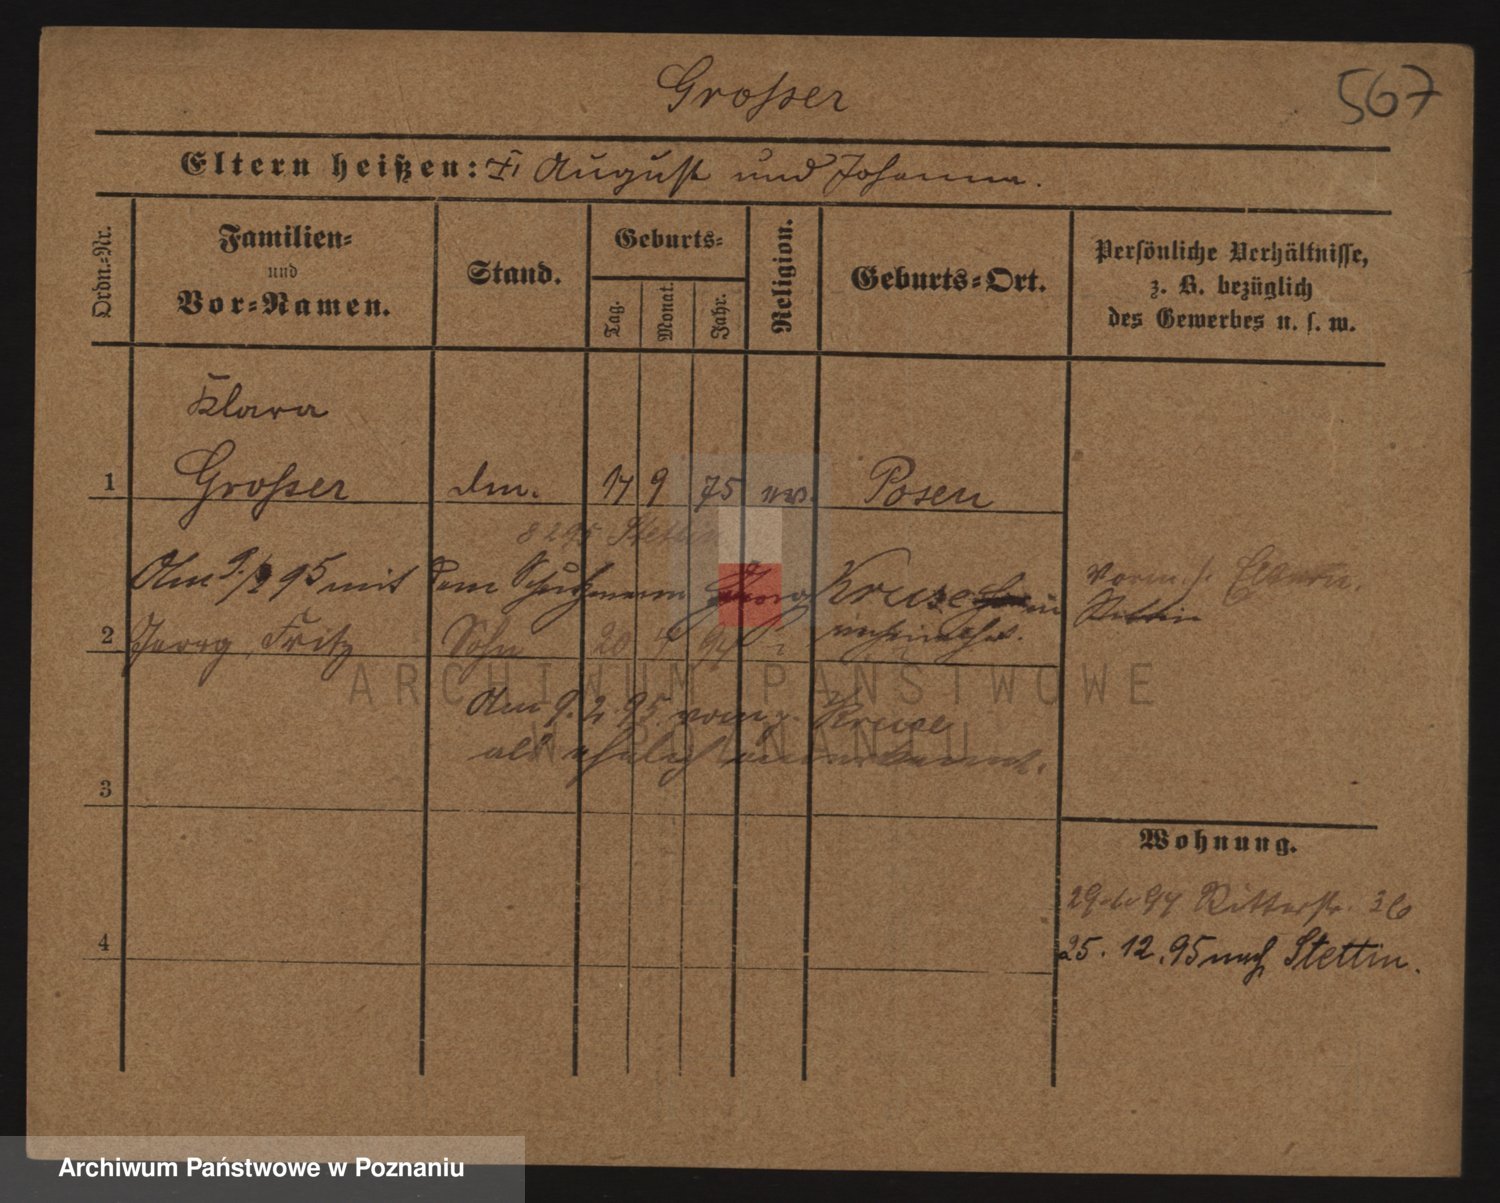 Grosser
567
Eltern heißen: August und Johanna.
Ordn.-Nr.
Familien-
und
Vor-Namen.
Stand.
Geburts-
Tag.
Monat.
Jahr.
Religion.
Geburts-Ort.
Persönliche Verhältnisse,
z. B. bezüglich
des Gewerbes u. s. w.
Klara
1 Grosser 9 75 ev. Posen
8 2 95 Stettin
Am 9./2 95 mit dem Schutzmann Georg Kruse
vorm. s. Eltern.
Stettin
2 Georg, Fritz Sohn 20 94
verheirathet.
Am 9. 2. 95. vom p. Kruse
als ehelich anerkannt.
3
4
Wohnung.
29 94 Ritterstr. 36
25. 12. 95 nach Stettin.
ARCHIWUM PAŃSTWOWE
W POZNANIU
Archiwum Państwowe w Poznaniu